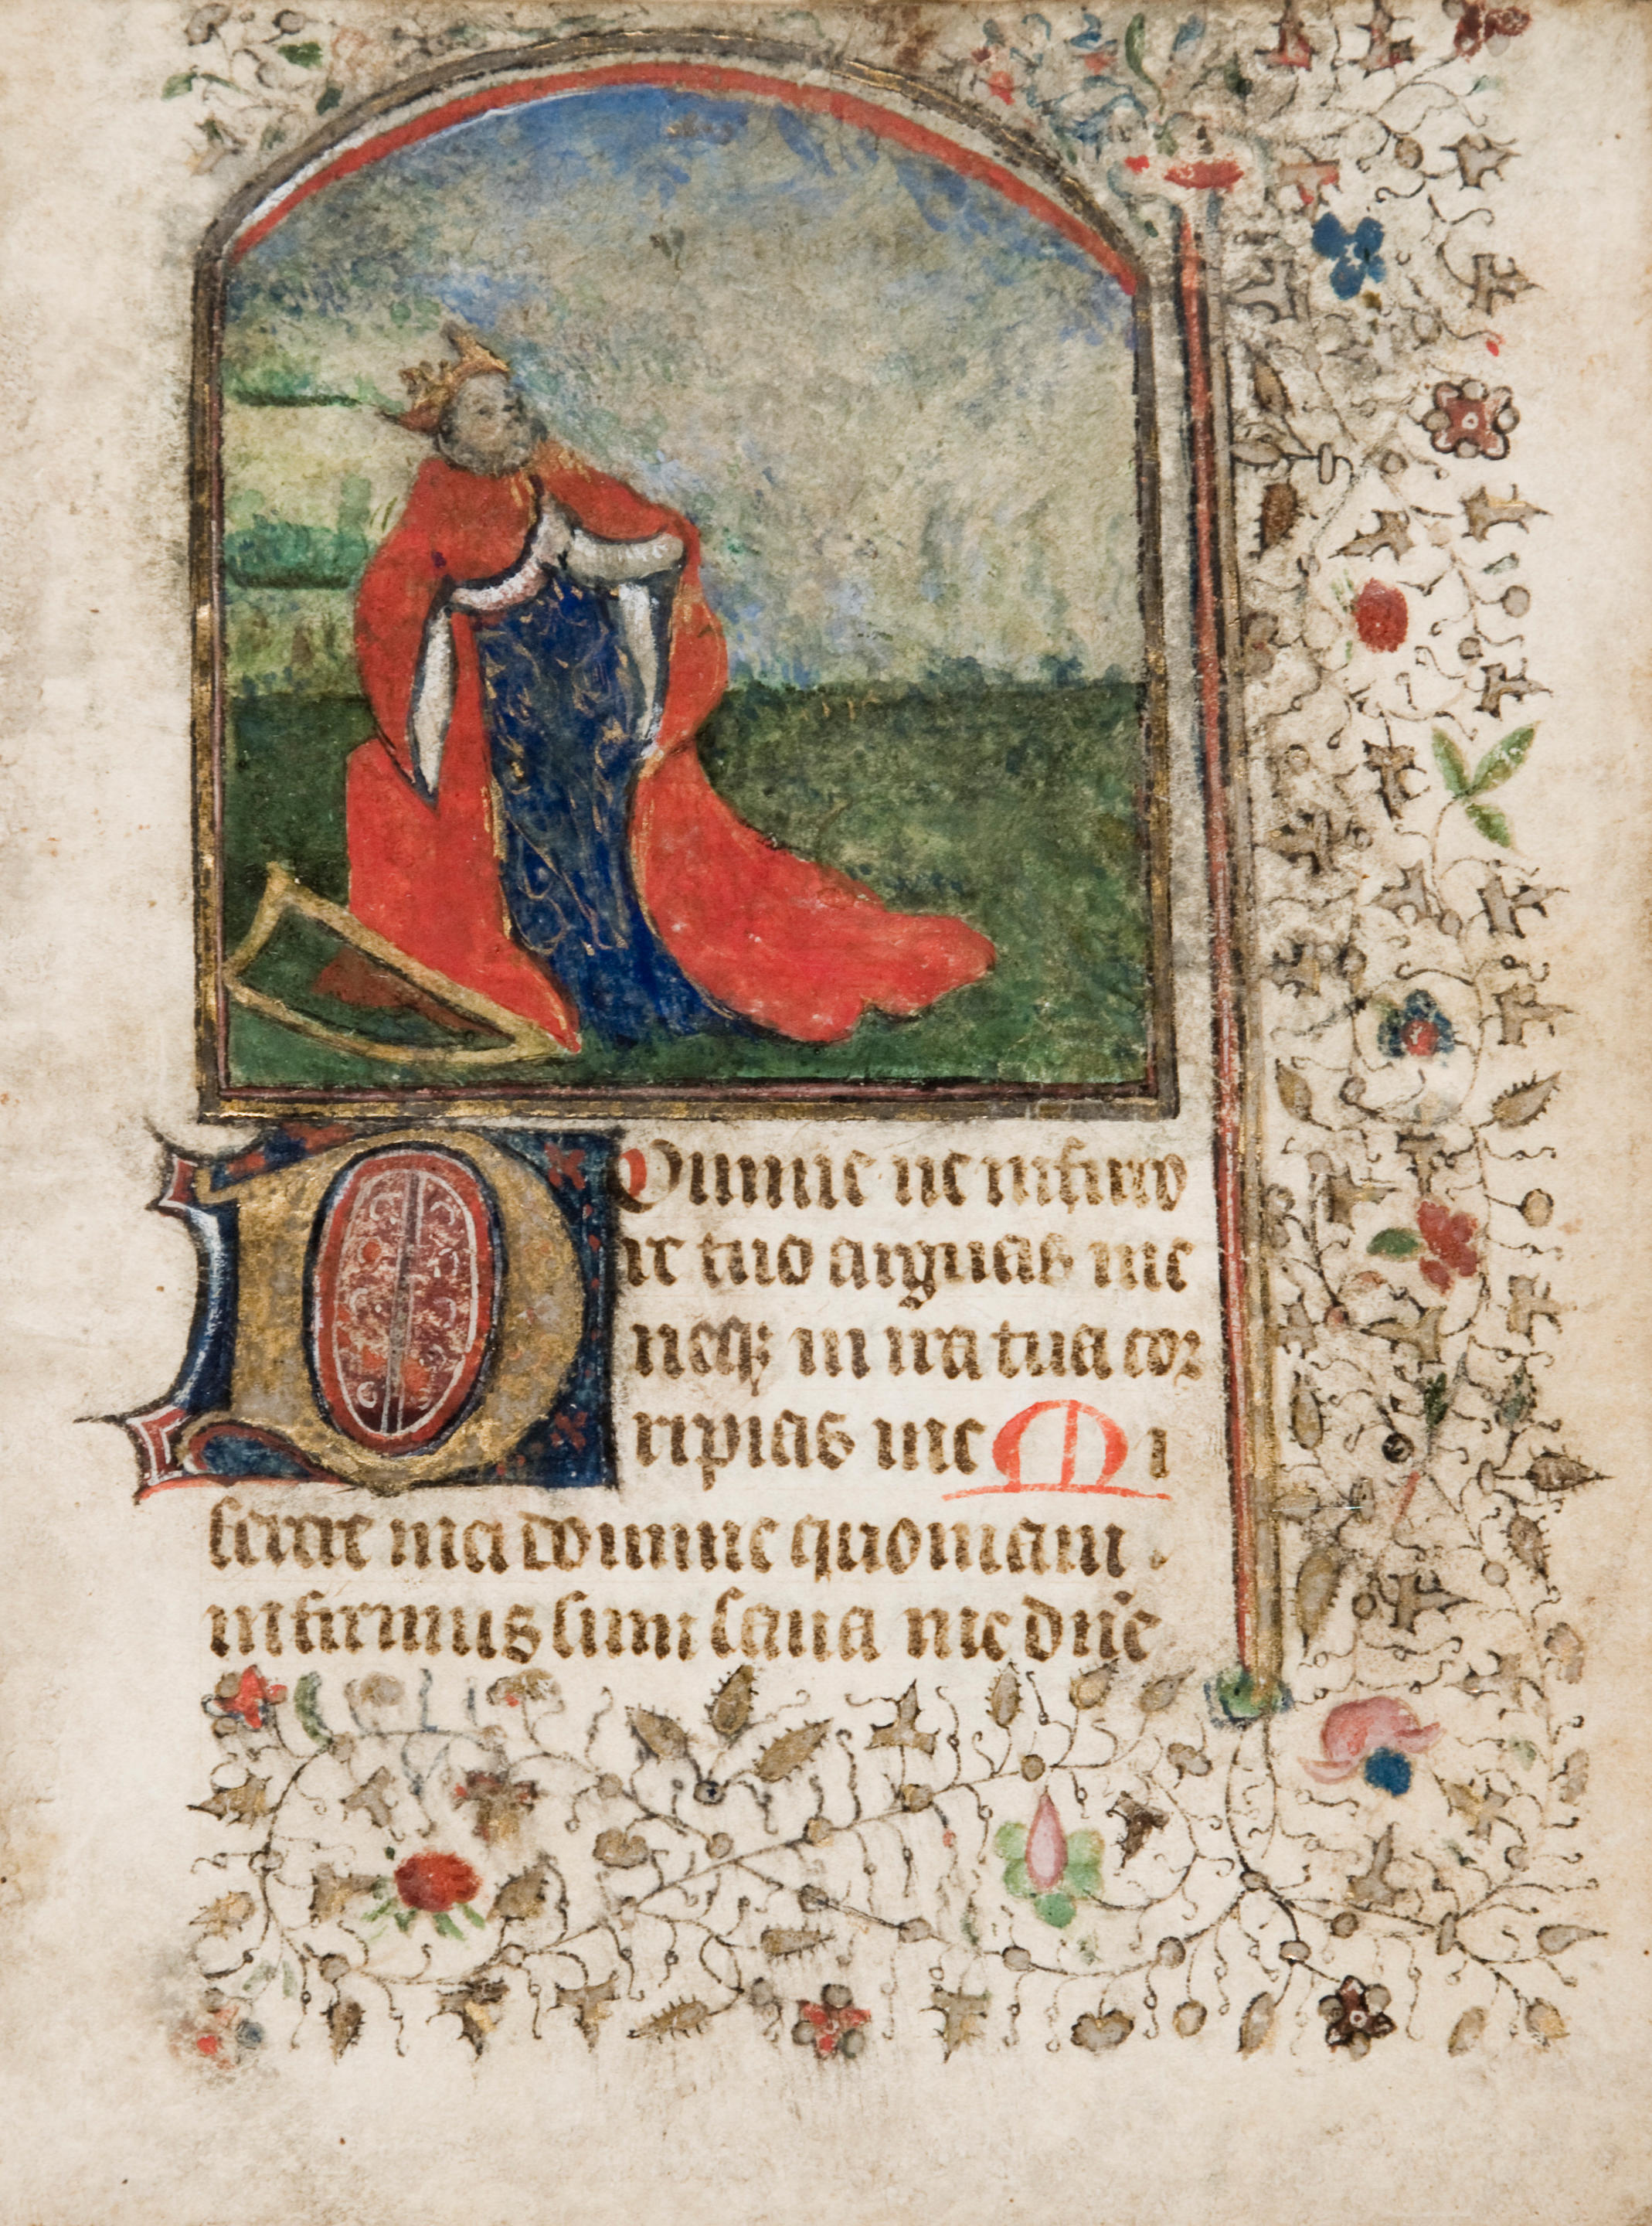 Domine ne in furo
re tuo arguas me
neqꝫ in ira tua cor
ripias me Mi
serere mei domine quoniam
infirmus sum sana me dn̄e